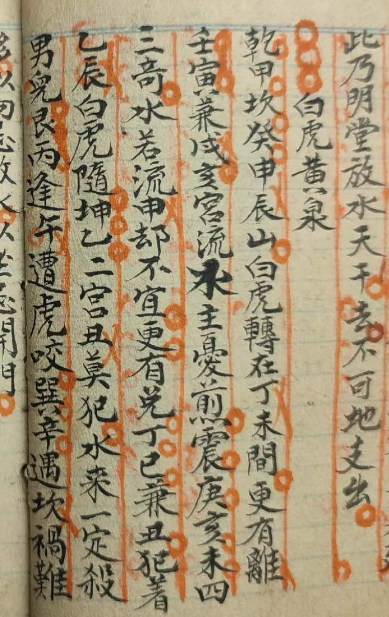 此乃明堂放水天干去不可地支出
白虎黃泉
乾甲坎癸申辰山白虎轉在丁未間更有離
壬寅兼戌亥宮流水主憂煎震庚亥未四
三奇水若流申却不宜更有兌丁巳兼丑犯着
乙辰白虎隨坤乙二宮丑莫犯水来一定殺
男兒艮丙逢午遭虎咬巽辛遇坎禍難
放水以坐忌開門